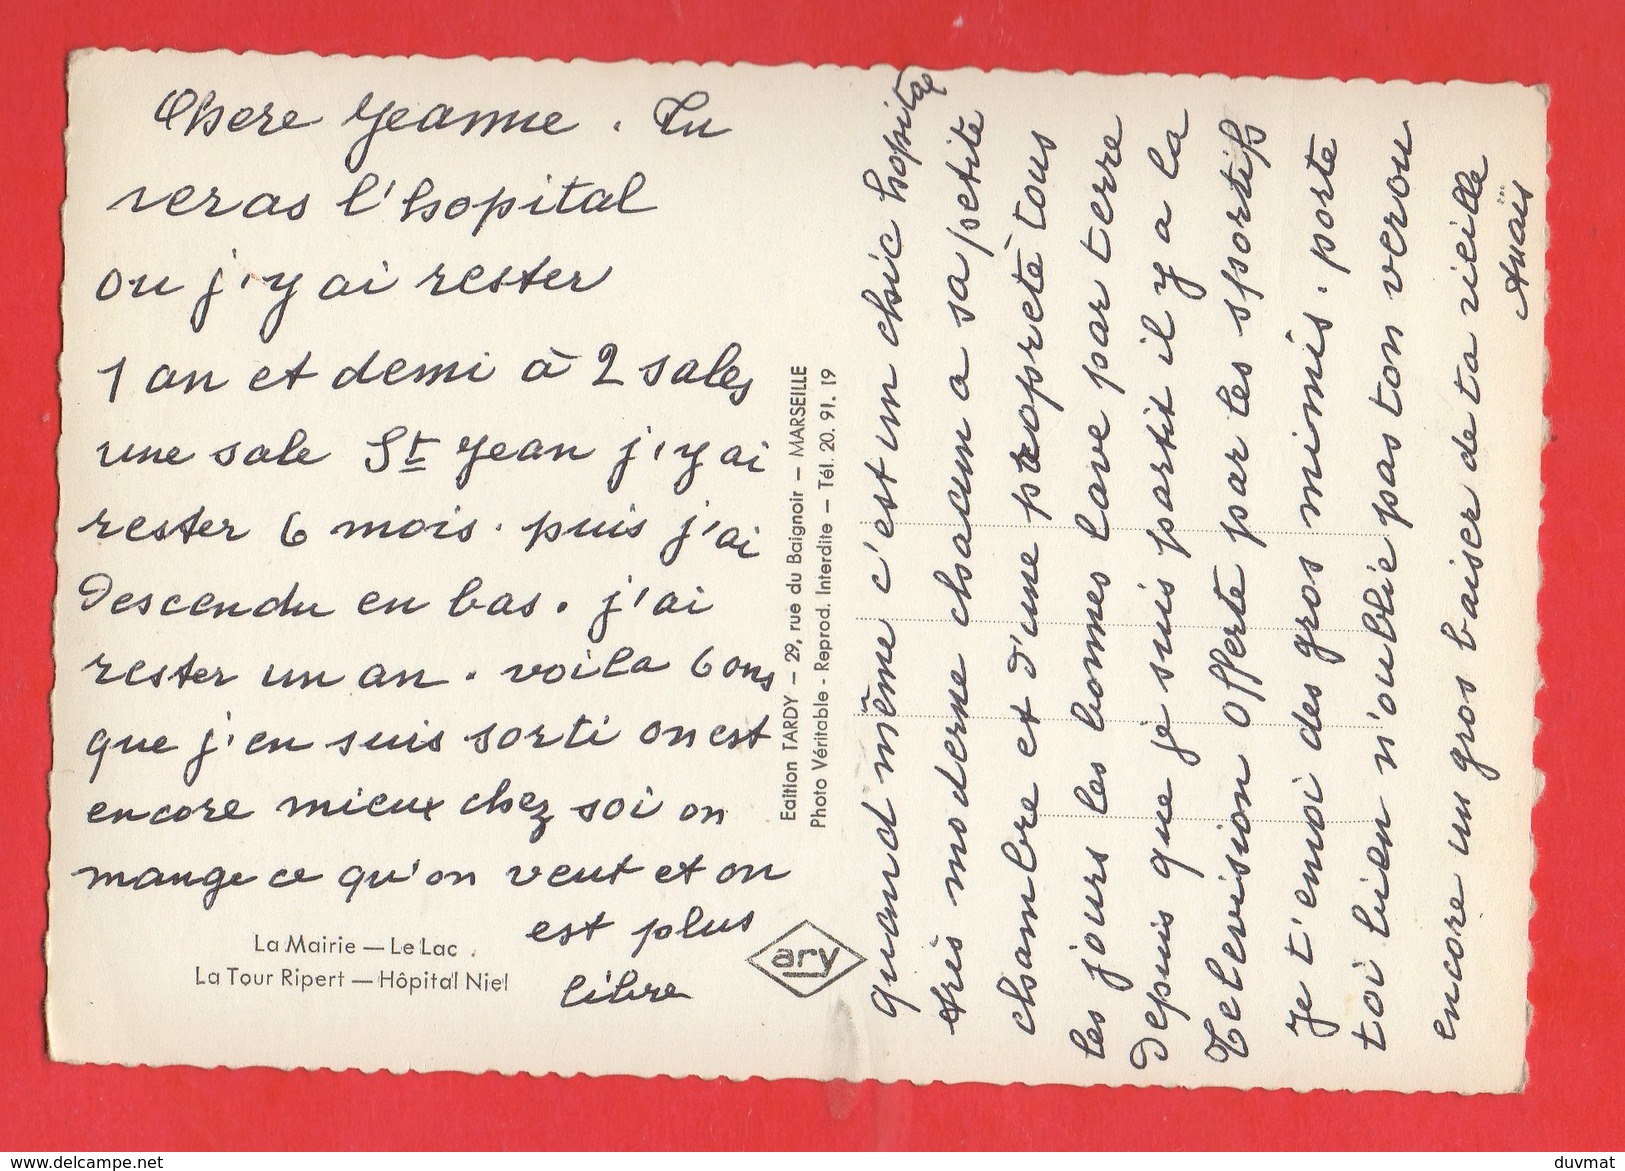 Chere Jeanne. Tu
veras l'hopital
ou j'y ai rester
1 an et demi à 2 sales
une sale St Jean j'y ai
rester 6 mois. puis j'ai
Descendu en bas. j'ai
rester un an. voila 6 ans
que j'en suis sorti on est
encore mieux chez soi on
mange ce qu'on veut et on
est plus
libre
La Mairie — Le Lac
La Tour Ripert — Hôpital Niel
Edition TARDY — 29, rue du Baignoir — MARSEILLE
Photo Véritable - Reprod. Interdite — Tél. 20. 91. 19
ary
quand même c'est un chic hopital
très moderne chacun a sa petite
chambre et d'une propreté tous
les jours les bonnes lave par terre
Depuis que je suis partit il y a la
Television offerte par les sportifs
Je t'envoi des gros mimis. porte
toi bien n'oublie pas ton verou
encore un gros baiser de ta vieille
Anaïs
www.delcampe.net
duvmat